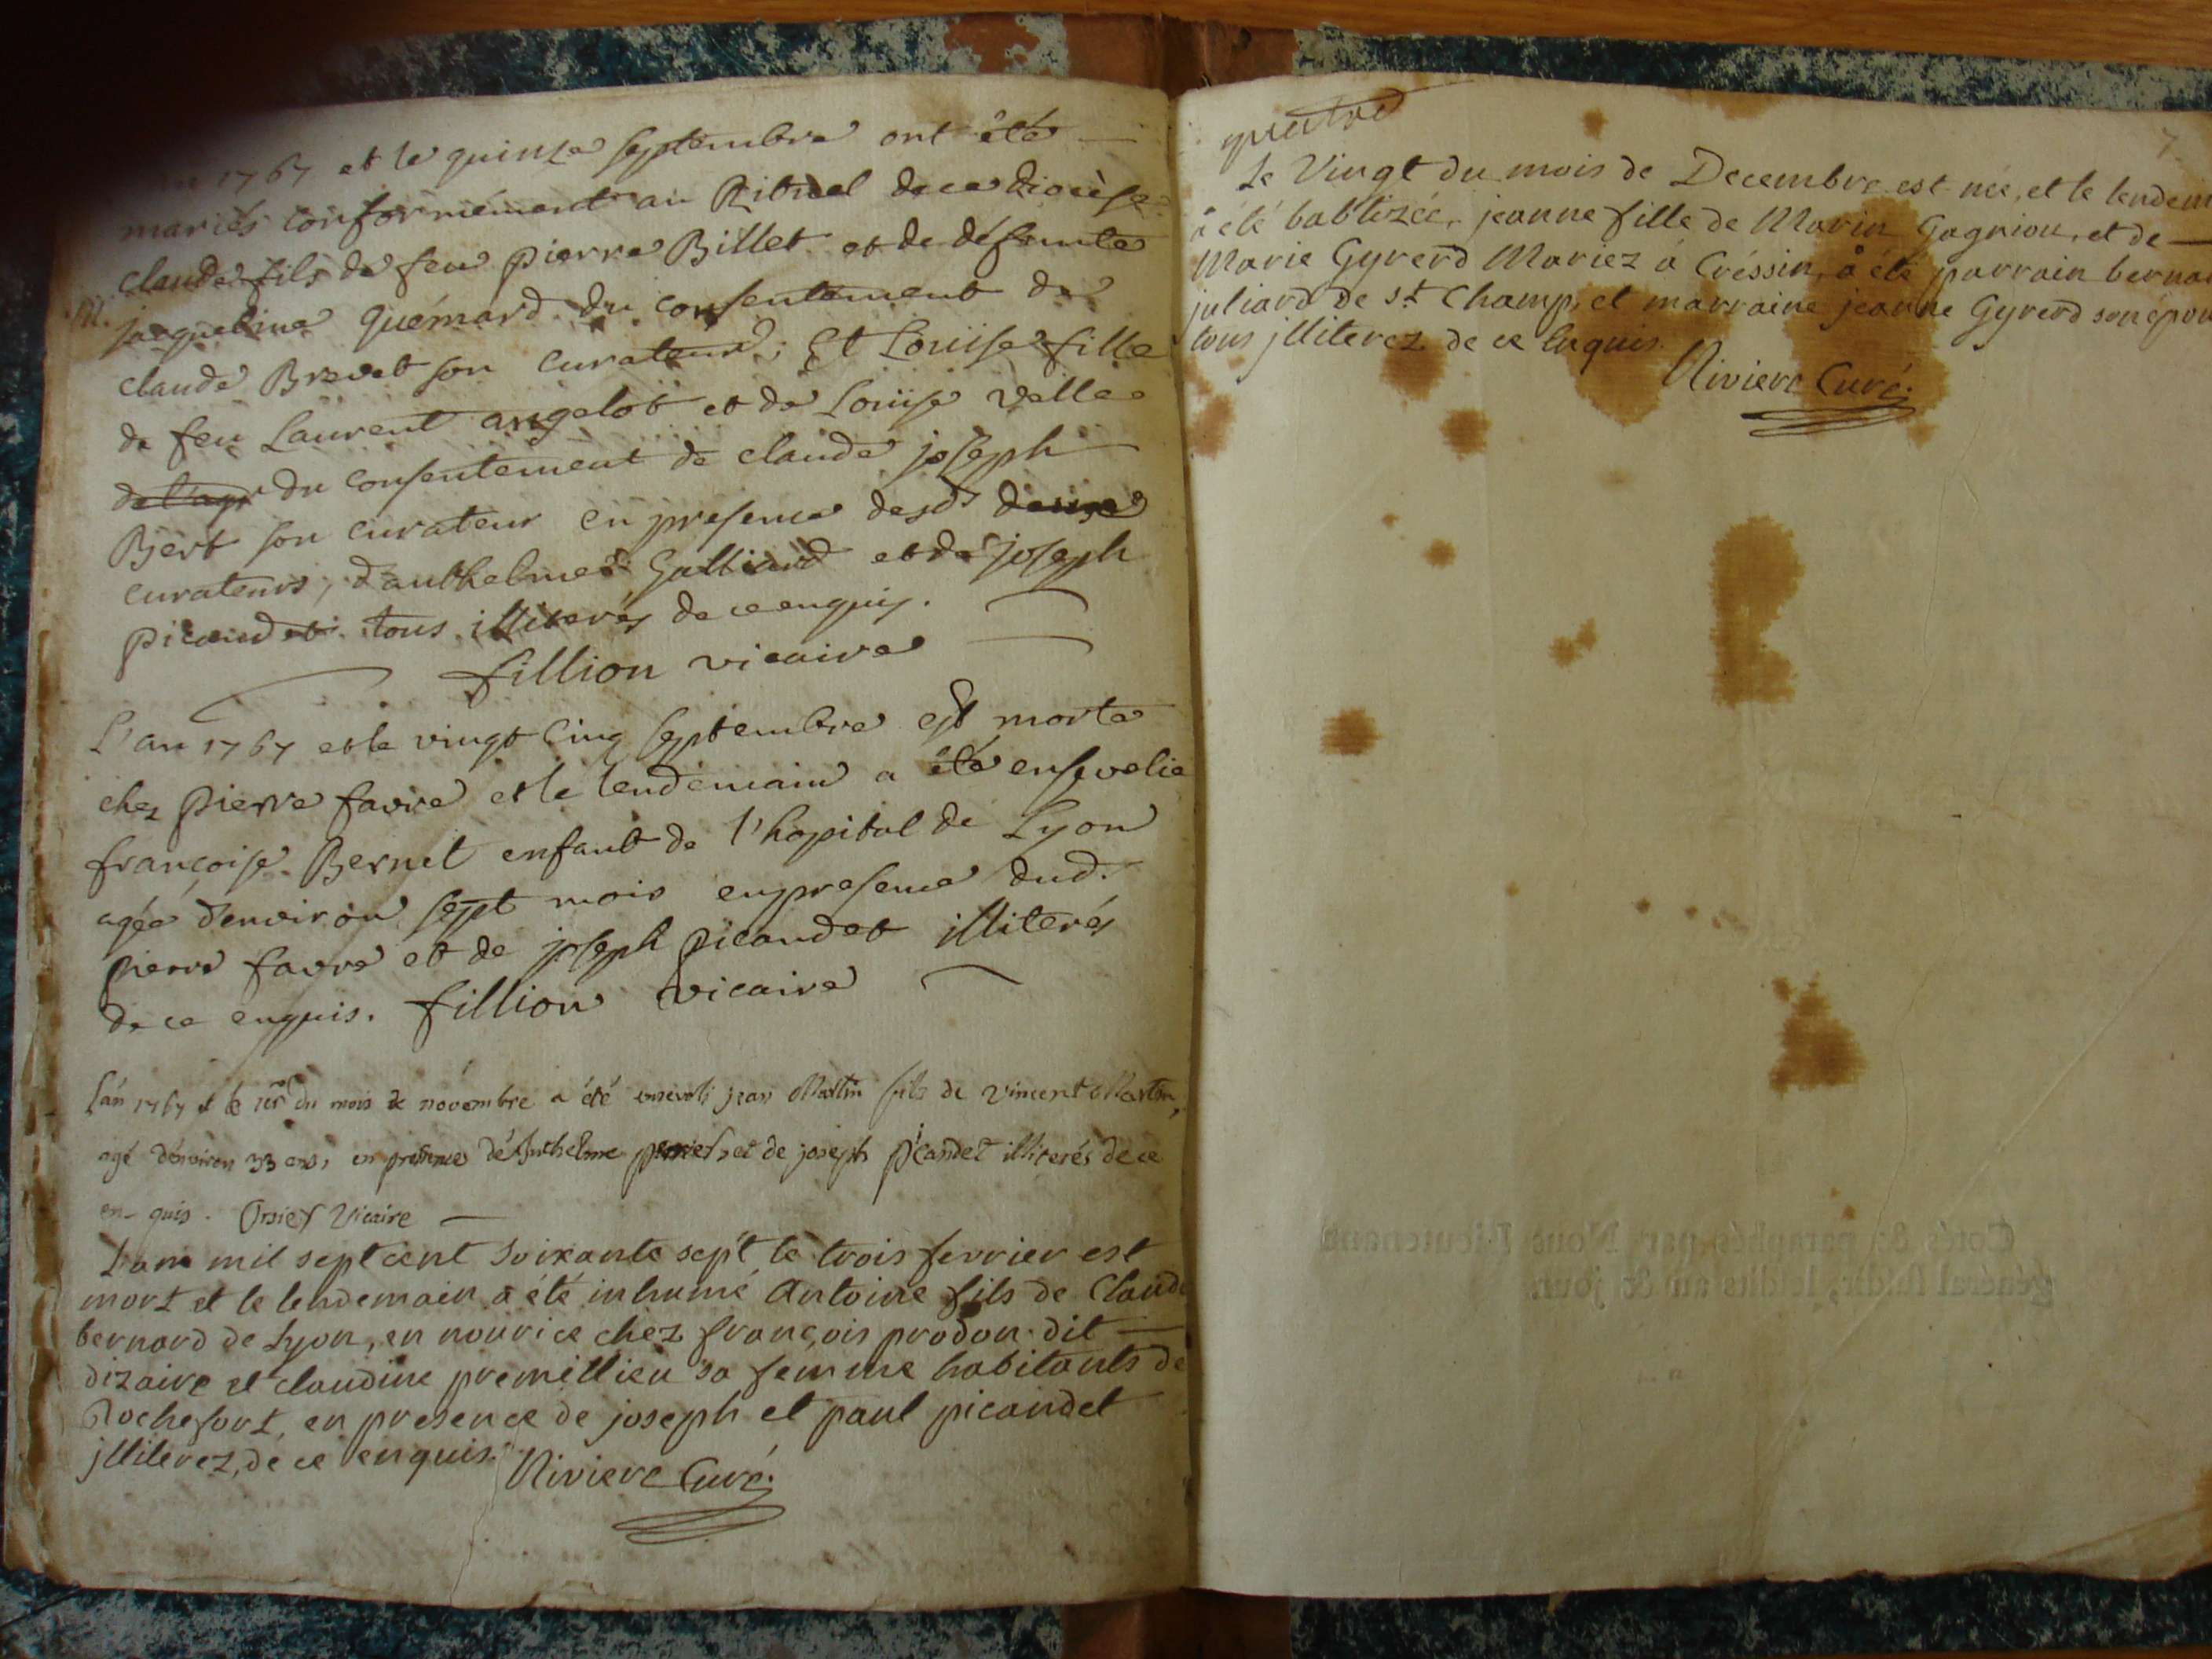 1767 et le quinze septembre ont été
mariés conformément au Rituel de ce diocèse
claude fils de feu pierre Billet et de défunte
M.
jacqueline Quémard du consentement de
claude Brevet son curateur; Et Louise fille
de feu Laurent angelot et de Louise vallée
du consentement de claude joseph
Bert son curateur en presence desd
curateurs, d'anthelme Galliard et de joseph
picaudet tous illiterés de ce enquis.
fillion vicaire
L'an 1767 et le vingt cinq septembre est morte
chez pierre favre et le lendemain a été ensevelie
françoise Bernet enfant de l'hopital de Lyon
agée d'environ sept mois en presence dud.
pierre favre et de joseph picaudet illiterés
de ce enquis. fillion vicaire
L'an 1767 et le 1er du mois de novembre a été enseveli jean Martin fils de vincent Martin,
agé d'environ 33 ans, en presence d'Anthelme et de joseph picandet illiterés de ce
en-quis. Orsier Vicaire
L'am mil sept cent soixante sept le trois fevrier est
mort et le lendemain a été inhumé Antoine fils de Claude
bernard de Lyon, en nourice chez françois prodon dit
dizaire et claudine premillieu sa femme habitants de
Rochefort, en presence de joseph et paul picandet
jlliterez, de ce enquis. Riviere Curé.
quatre
7
Le Vingt du mois de Decembre est née, et le lendem
a été babtizée, jeanne fille de Marin Gagniou, et de
Marie Gyrerd Mariez á Créssin, a été parrain berna
juliard de st Champ, et marraine jeanne Gyrerd son épou
tous jlliterez de ce Enquis.
Riviere Curé.
Cotés & paraphés par Nous Lieutenant
général susdit, lesdits an & jour.